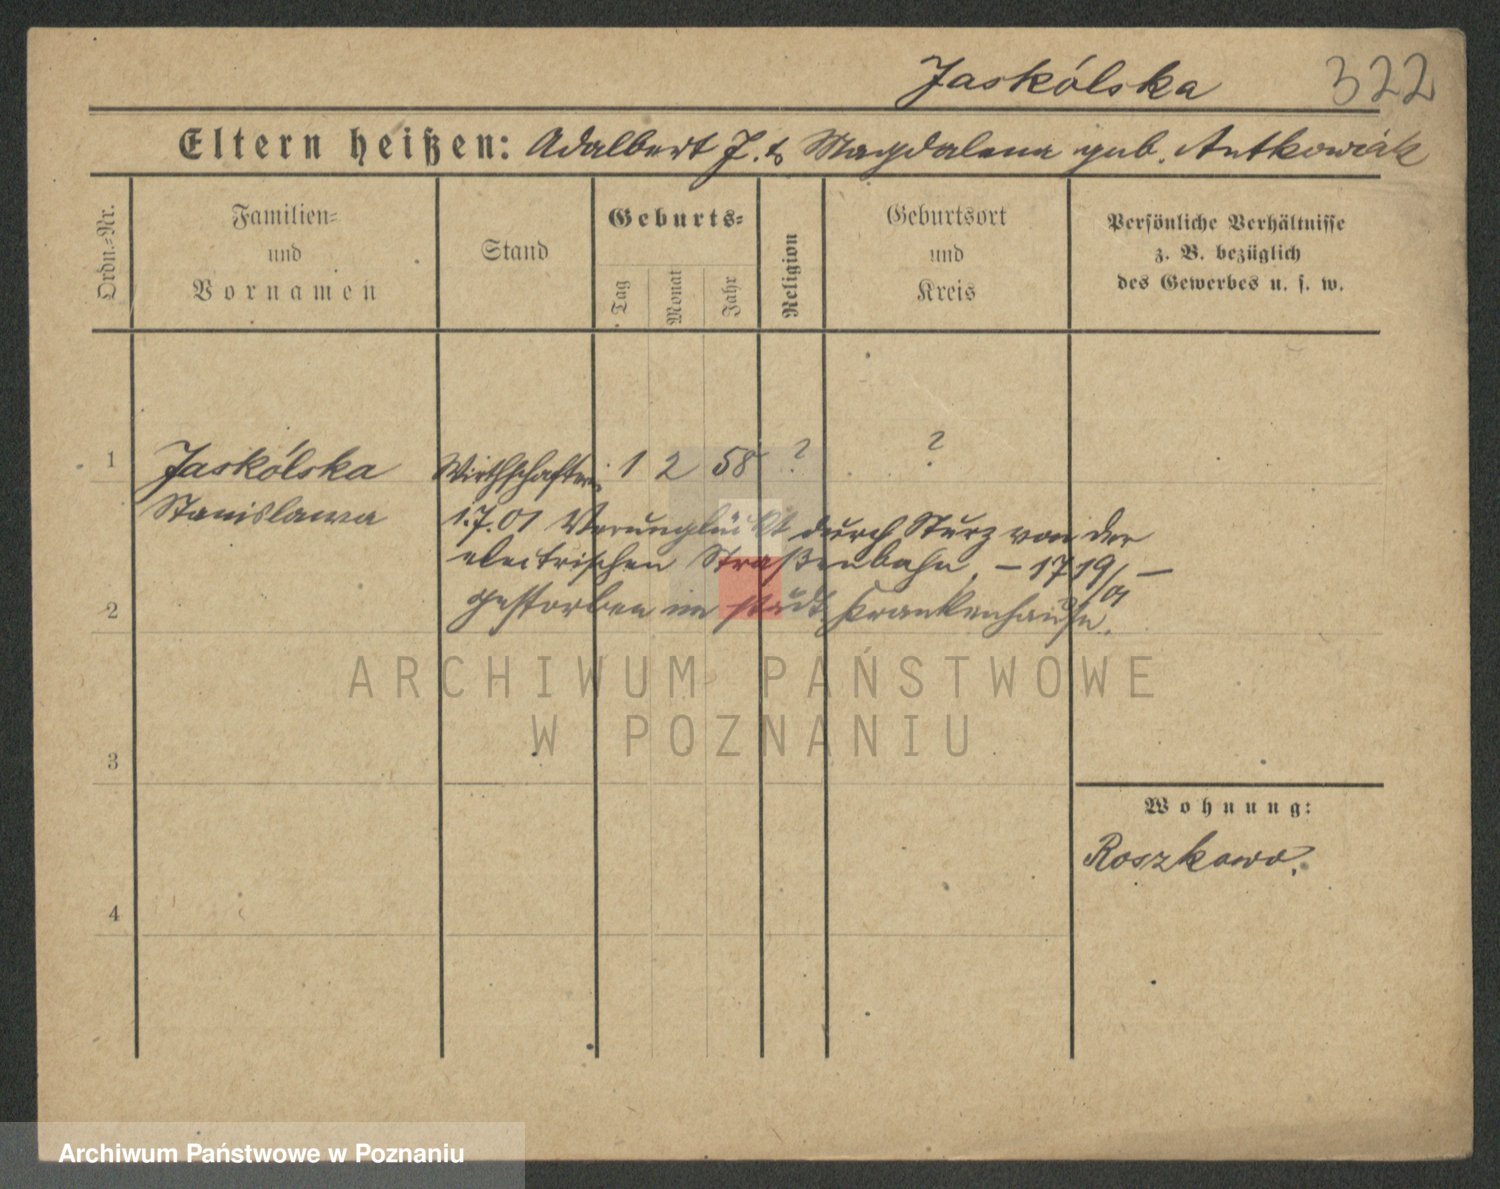 Jaskólska 322
Eltern heißen: Adalbert J. & Magdalena geb. Antkowiak
Ordn.-Nr.
Familien-
und
Vornamen
Stand
Geburts-
Tag
Monat
Jahr
Religion
Geburtsort
und
Kreis
Persönliche Verhältnisse
z. B. bezüglich
des Gewerbes u. s. w.
1 Jaskólska Wirthschafterin 1 2 58 ? ?
Stanislawa
1.7.01 Verunglückt durch Sturz von der
electrischen Straßenbahn, — 1719/01 —
2 gestorben im städt Krankenhause.
ARCHIWUM PAŃSTWOWE
W POZNANIU
3
Wohnung:
Roszkowo.
4
Archiwum Państwowe w Poznaniu